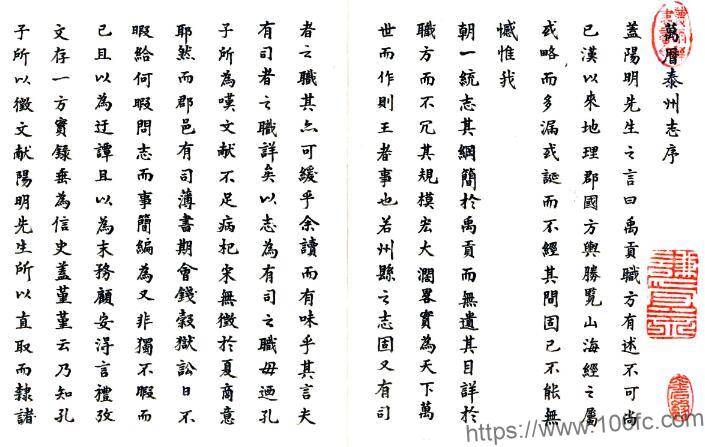 萬曆泰州志序
蓋陽明先生之言曰禹貢職方有述不可尚
已漢以來地理郡國方輿勝覽山海經之屬
或略而多漏或誕而不經其間固已不能無
憾惟我
朝一統志其綱簡於禹貢而無遺其目詳於
職方而不冗其規模宏大濶畧實為天下萬
世而作則王者事也若州縣之志固又有司
者之職其亦可緩乎余讀而有味乎其言夫
有司者之職詳矣以志為有司之職毋迺孔
子所為嘆文献不足病杞宋無徵於夏商意
耶然而郡邑有司薄書期會錢穀獄訟日不
暇給何暇問志而事簡編為又非獨不暇而
已且以為迂譚且以為末務顧安得言禮攷
文存一方實録垂為信史蓋堇堇云乃知孔
子所以徵文献陽明先生所以直取而隸諸
https://www.100fc.com